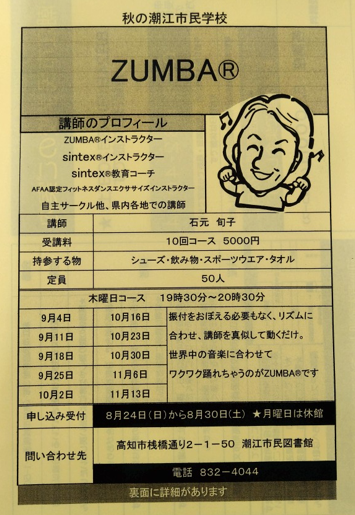 秋の潮江市民学校
ZUMBA®
講師のプロフィール
ZUMBA®インストラクター
sintex®インストラクター
sintex®教育コーチ
AFAA認定フィットネスダンスエクササイズインストラクター
自主サークル他、県内各地での講師
講師 石元 旬子
受講料 10回コース 5000円
持参する物 シューズ・飲み物・スポーツウエア・タオル
定員 50人
木曜日コース 19時30分～20時30分
9月4日 10月16日 振付をおぼえる必要もなく、リズムに
9月11日 10月23日 合わせ、講師を真似して動くだけ。
9月18日 10月30日 世界中の音楽に合わせて
9月25日 11月6日 ワクワク踊れちゃうのがZUMBA®です
10月2日 11月13日
申し込み受付 8月24日(日)から8月30日(土) ★月曜日は休館
問い合わせ先 高知市桟橋通り2－1－50 潮江市民図書館
電話 832－4044
裏面に詳細があります